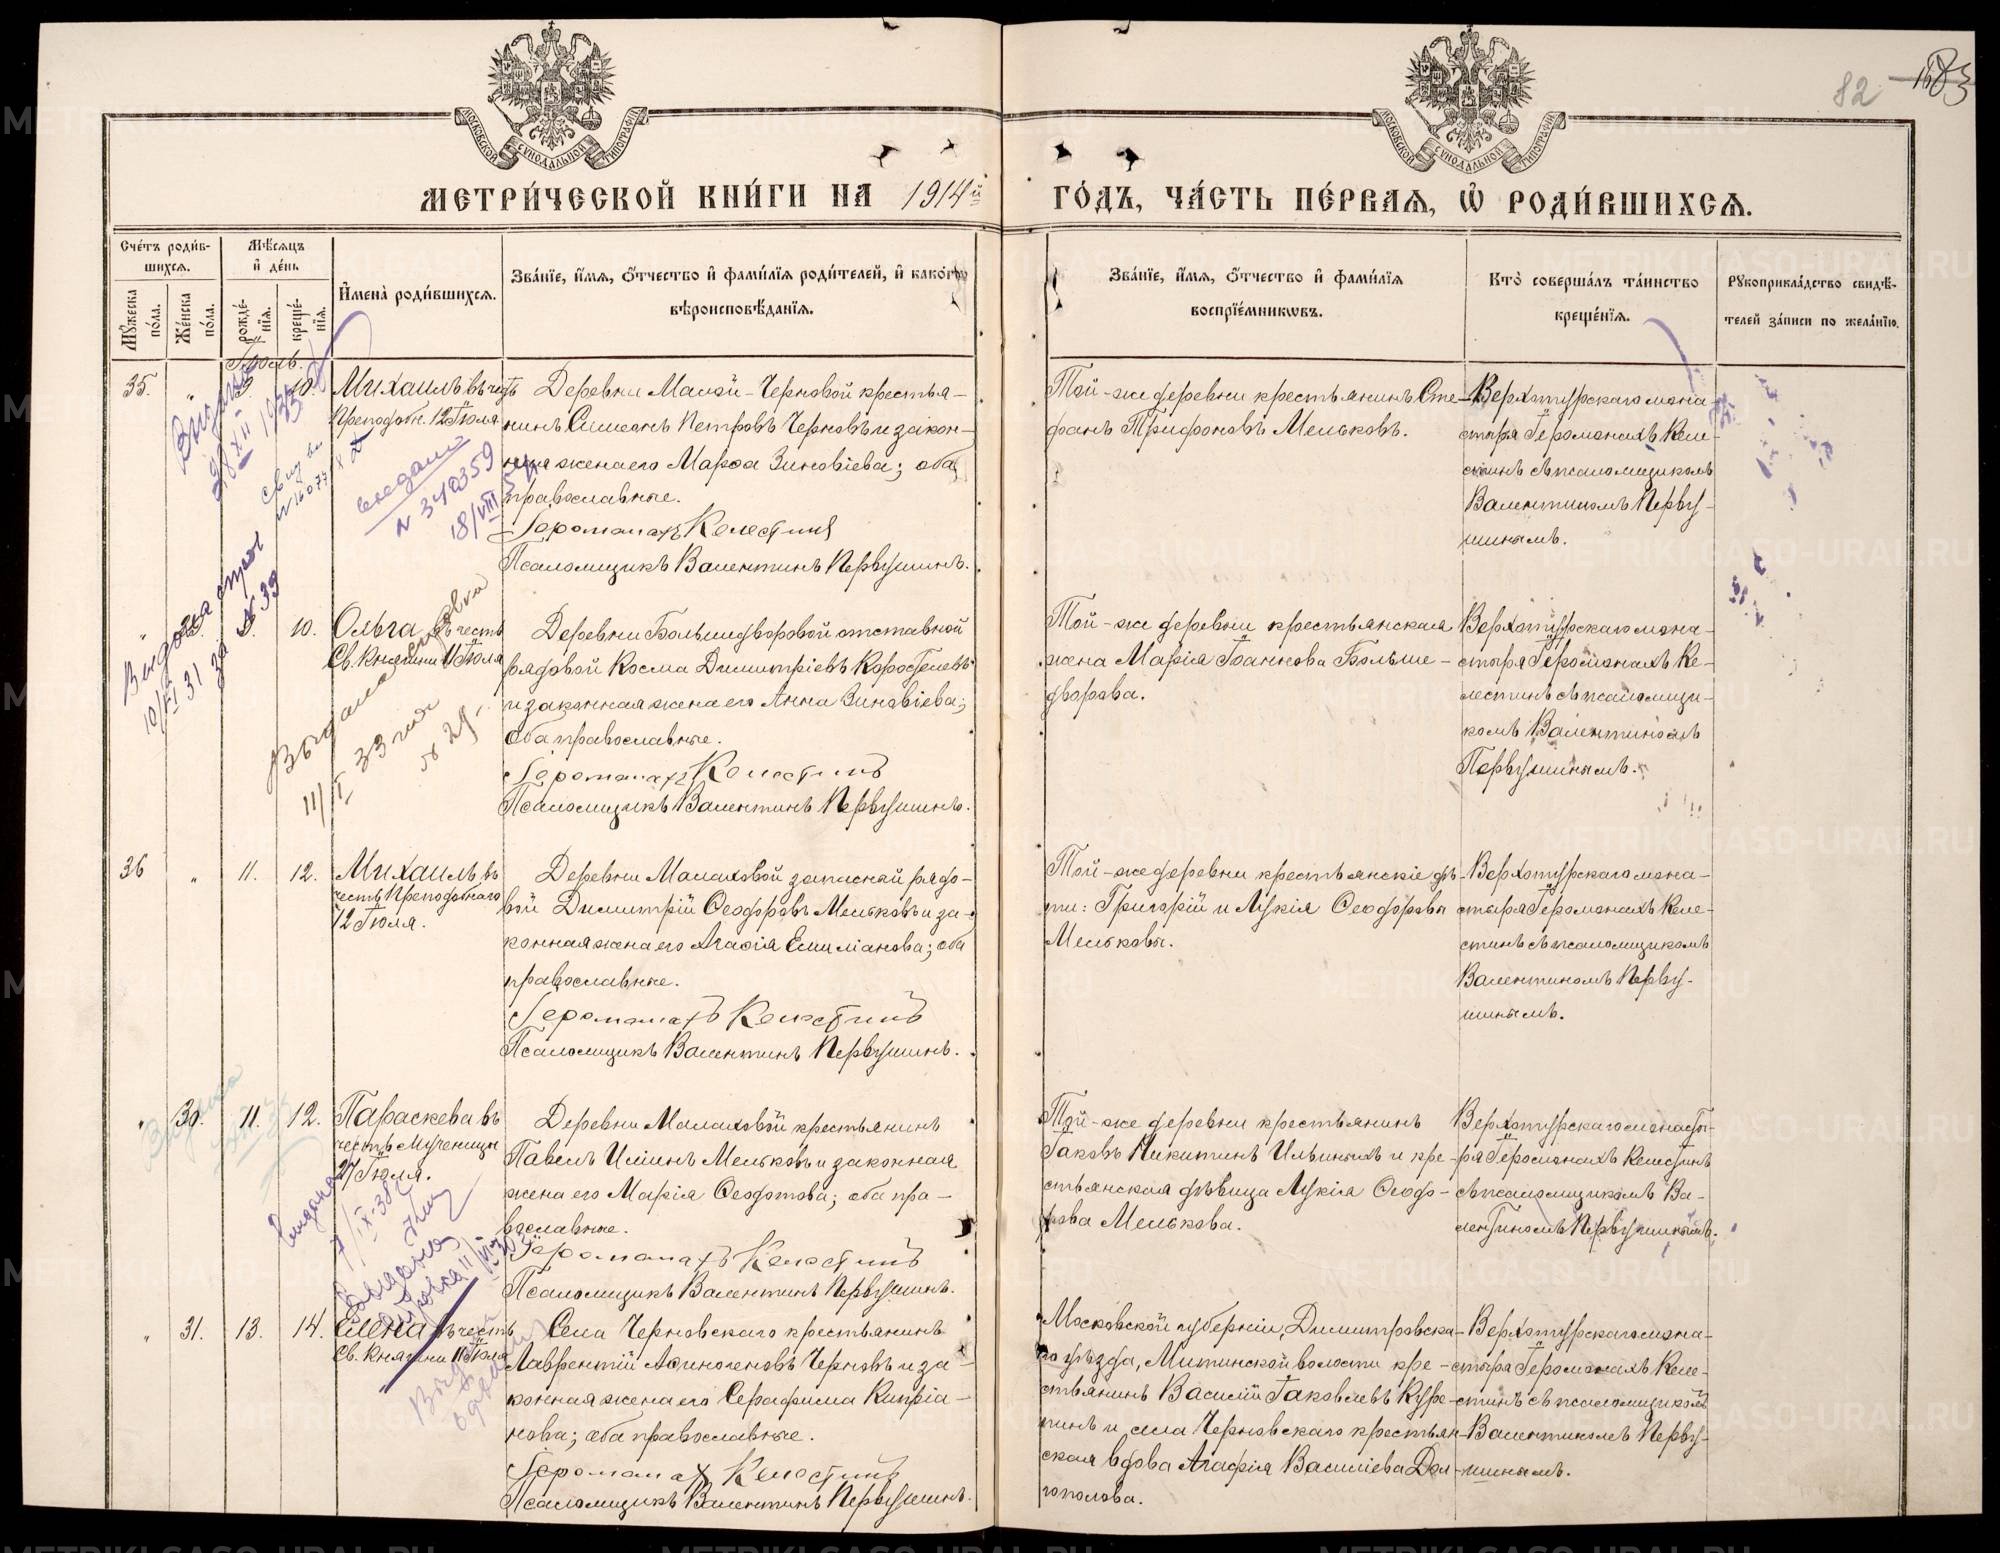 МОСКОВСКОЙ СѴНОДАЛЬНОЙ ТИПОГРАФІИ
МОСКОВСКОЙ СѴНОДАЛЬНОЙ ТИПОГРАФІИ
82
МЕТРИ́ЧЕСКОЙ КНИ́ГИ НА 1914й
ГО́ДЪ, ЧА́СТЬ ПЕ́РВАЯ, Ѡ РОДИ́ВШИХСЯ.
Сче́тъ роди́в-
шихся.
Мѣ́сяцъ
и де́нь
Му́жеска
по́ла.
Же́нска
по́ла.
рожде́-
нїя.
креще́-
нїя.
Имена̀ роди́вшихся.
Зва́нїе, и́мя, о́тчество и фами́лїя роди́телей, и како́гѡ
вѣроисповѣ́данїя.
Зва́нїе, и́мя, о́тчество и фами́лїя
воспрїе́мникѡвъ.
Кто̀ соверша́лъ та́инство
креще́нїя.
Рукоприкла́дство свидѣ́-
телей за́писи по жела́нїю.
Іюль.
35. " 9. 10.
Михаилъ въ честь
Преподобн. 12 Іюля
Деревни Малой-Черновой крестья-
нинъ Симеонъ Петровъ Черновъ и закон-
ная жена его Марѳа Зиновіева; оба
православные.
Іеромонахъ Келестинъ
Псаломщикъ Валентинъ Первушинъ.
Той-же деревни крестьянинъ Сте-
фанъ Трифоновъ Мельковъ.
Верхотурскаго мона-
стыря Іеромонахъ Келе-
стинъ съ псаломщикомъ
Валентиномъ Перву-
шинымъ.
N 342359
18/VIII 54
" 29. 9. 10.
Ольга въ честь
Св. Княгини 11 Іюля
Деревни Большедворовой отставной
рядовой Косма Димитріевъ Коростелевъ
и законная жена его Анна Зиновіева;
оба православные.
Іеромонахъ Келестинъ
Псаломщикъ Валентинъ Первушинъ.
Той-же деревни крестьянская
жена Марія Іоаннова Больше-
дворова.
Верхотурскаго мона-
стыря Іеромонахъ Ке-
лестинъ съ псаломщи-
комъ Валентиномъ
Первушинымъ.
Выдана
36 " 11. 12.
Михаилъ въ
честь Преподобнаго
12 Іюля.
Деревни Малаховой запасной рядо-
вой Димитрій Ѳеодоровъ Мельковъ и за-
конная жена его Агафія Емиліанова; оба
православные.
Іеромонахъ Келестинъ
Псаломщикъ Валентинъ Первушинъ.
Той-же деревни крестьянскіе дѣ-
ти: Григорій и Лукія Ѳеодоровы
Мельковы.
Верхотурскаго мона-
стыря Іеромонахъ Келе-
стинъ съ псаломщикомъ
Валентиномъ Перву-
шинымъ.
" 30. 11. 12.
Параскева въ
честь Мученицы
27 Іюля.
Деревни Малаховой крестьянинъ
Павелъ Иліинъ Мельковъ и законная
жена его Марія Ѳеодотова; оба пра-
вославные.
Іеромонахъ Келестинъ
Псаломщикъ Валентинъ Первушинъ.
Той-же деревни крестьянинъ
Іаковъ Никитинъ Ильиныхъ и кре-
стьянская дѣвица Лукія Ѳеодо-
рова Мелькова.
Верхотурскаго монасты-
ря Іеромонахъ Келестинъ
съ псаломщикомъ Ва-
лентиномъ Первушинымъ.
" 31. 13. 14.
Елена въ честь
Св. Княгини 11 Іюля
Села Черновскаго крестьянинъ
Лаврентій Аѳиногеновъ Черновъ и за-
конная жена его Серафима Кипріа-
нова; оба православные.
Іеромонахъ Келестинъ
Псаломщикъ Валентинъ Первушинъ.
Московской губерніи, Димитровска-
го уѣзда, Митинской волости кре-
стьянинъ Василій Іаковлевъ Куре-
пинъ и села Черновскаго крестьян-
ская вдова Агафія Василіева Дол-
гополова.
Верхотурскаго мона-
стыря Іеромонахъ Келе-
стинъ съ псаломщикомъ
Валентиномъ Перву-
шинымъ.
METRIKI.GASO-URAL.RU